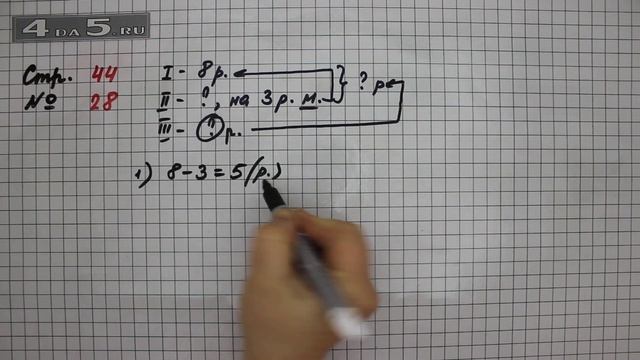 4 DA 5.RU
Стр. 44
№ 28
I - 8р.
II - ?, на 3р. м. } ? р
III - ? р.
1) 8-3=5(р.)